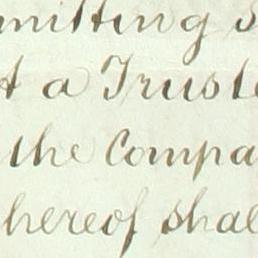 mitting s
t a Truste
the Compa
hereof shal